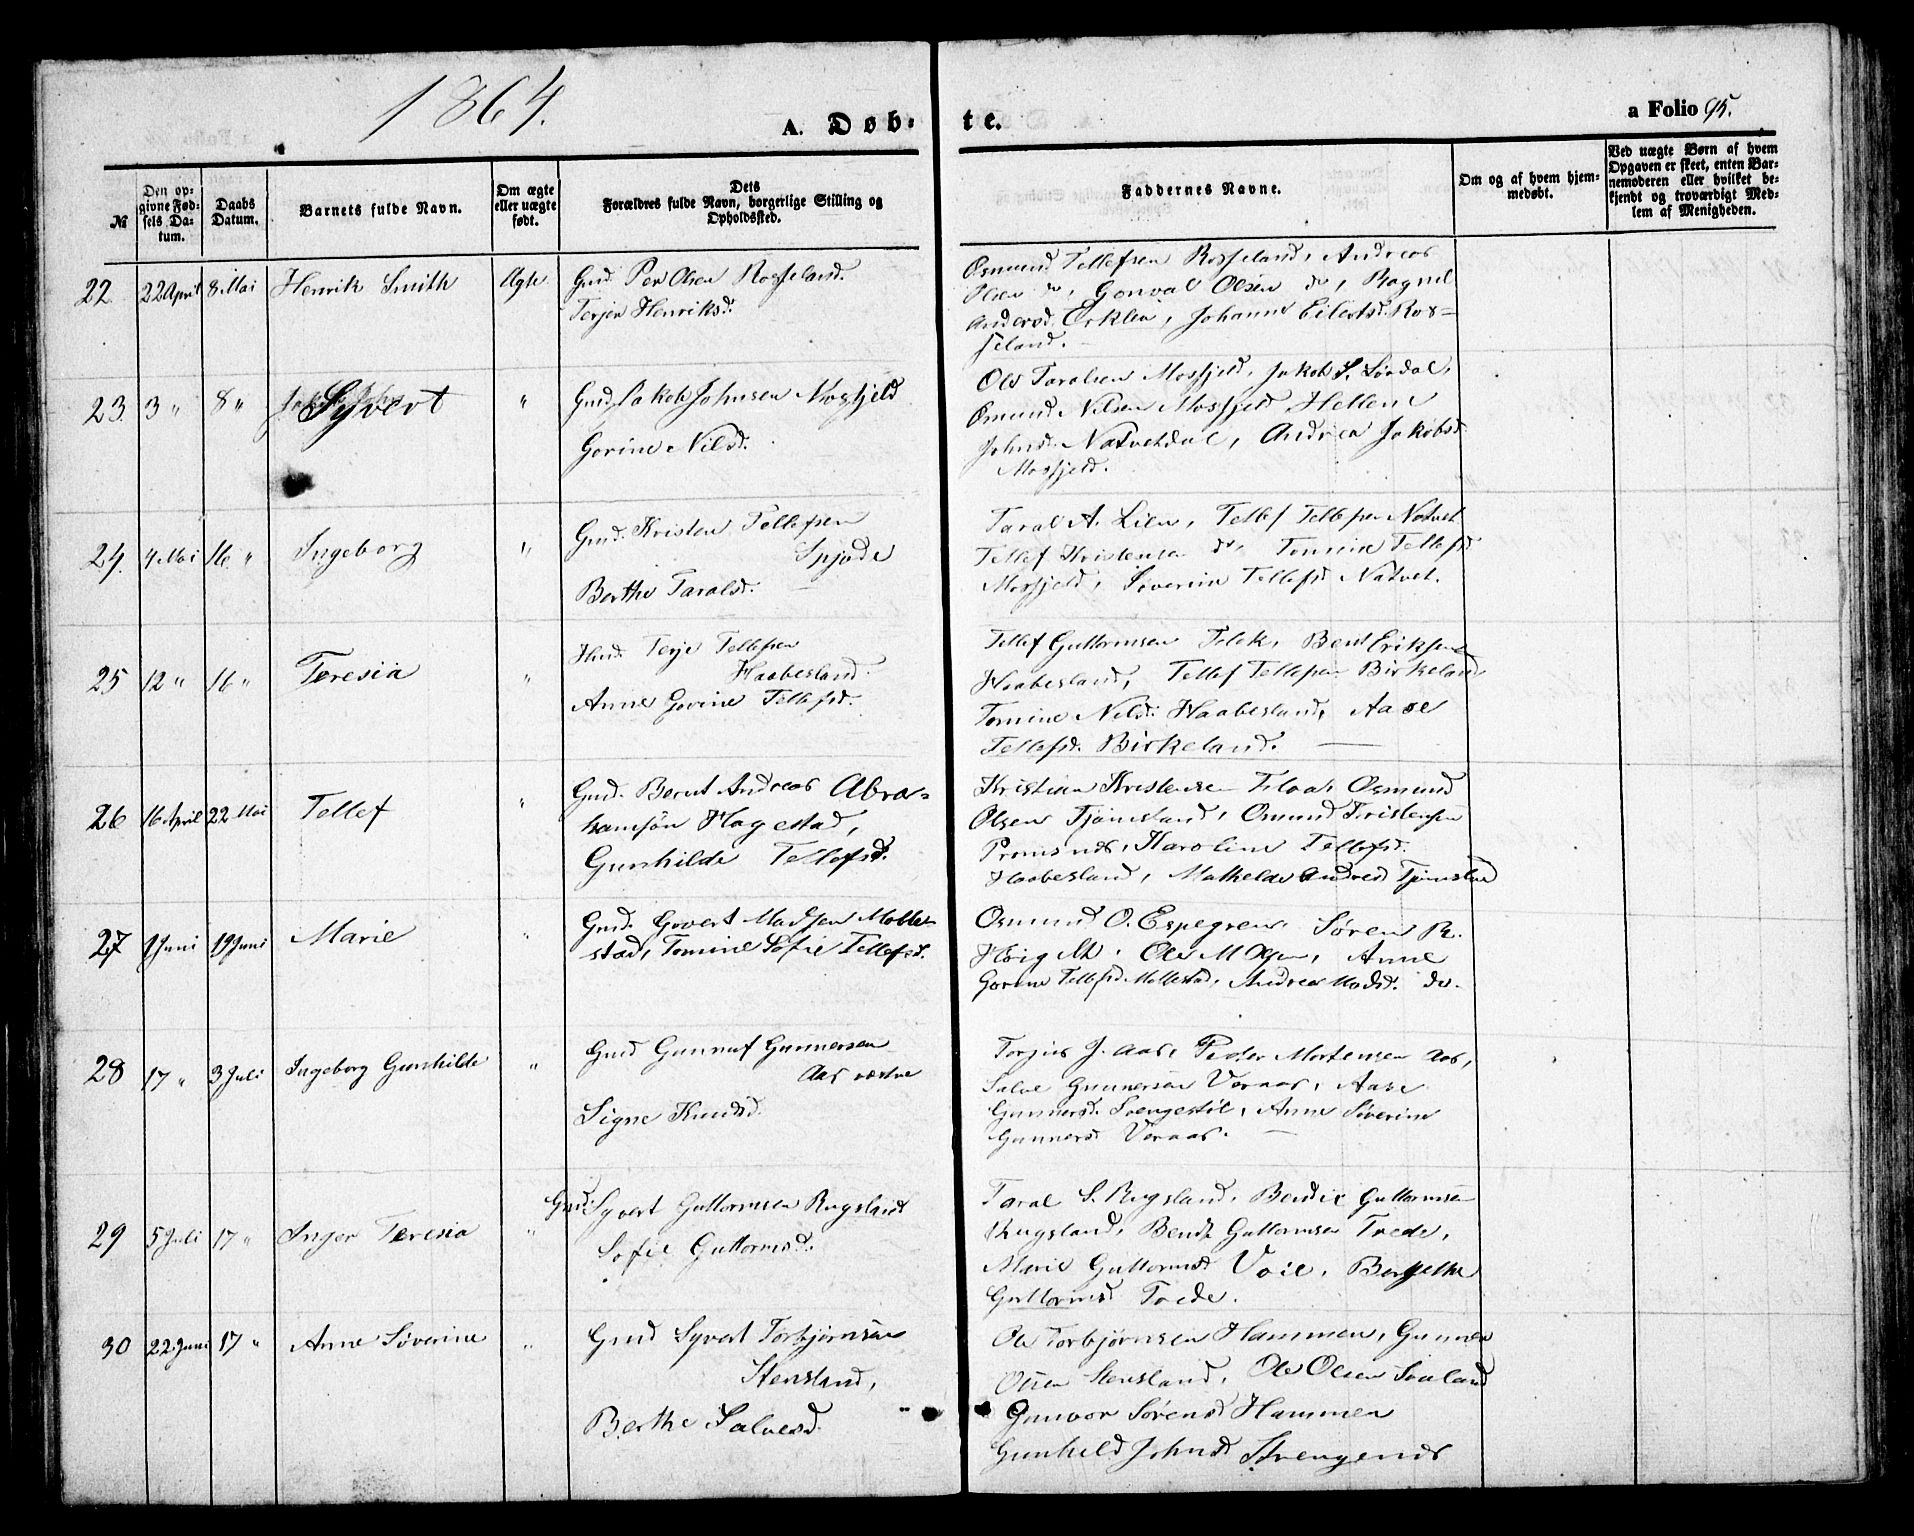 1864.
A. Døb-
te.
a Folio 95.
№
Den op-
givne Fød-
sels Da-
tum.
Daabs
Datum.
Barnets fulde Navn.
Om ægte
eller uægte
født.
Dets
Forældres fulde Navn, borgerlige Stilling og
Opholdssted.
Faddernes Navne.
Om og af hvem hjem-
medøbt.
Ved uægte Børn af hvem
Opgaven er skeet, enten Bar-
nemoderen eller hvilket be-
kjendt og troværdigt Med-
lem af Menigheden.
22 22 April 8 Mai Henrik Smith Ægte
Gmd. Per Olsen Rosseland.
Terjer Henriksd.
Osmund Tellefsen Rosseland, Andreas
Olsen do, Gonval Olsen do, Ragnil
Andersd. Erklev, Johanne Eilertsd. Ros-
seland.
23. 3 " 8 " Syvert "
Gmd. Jakob Johnsen Mosfjeld
Gorine Nilsd.
Ole Taralsen Mosfjeld, Jakob S. Løvdal,
Osmund Nilsen Mosfjeld Hellene
Johnsd. Natvetdal, Andrea Jakobsd.
Mosfjeld.
24. 4 Mai 16 " Ingeborg "
Gmd. Kristen Tellefsen
Spjode
Berthe Taralsd.
Taral A. Lien, Tellef Tellefsen Natvet
Tellef Kristensen do, Tomine Tellefsd
Mosfjeld, Severine Tellefsd Natvet.
25 12 " 16 " Teresia "
Hmd. Terje Tellefsen
Haabesland.
Anne Gorine Tellefsd.
Tellef Guttormsen Flek, Bent Eriksen
Haabesland, Tellef Tellefsen Birkeland
Tomine Nilsd. Haabesland, Aase
Tellefsd. Birkeland.
26 16 April 22 Mai Tellef "
Gmd. Bernt Andreas Abra-
hamsøn Hagestad,
Gunhilde Tellefsd.
Kristian Kristensen Flaa, Osmund
Olsen Tjømsland, Osmund Kristensen
Karoline Tellefsd.
Haabesland, Mathelde Andresd Tjømsland
27 1 Juni 19 Juni Marie "
Gmd. Govert Madsen Molle-
stad, Tomine Sofie Tellefsd.
Osmund O. Espegren, Søren R.
Ole M Olsen, Anne
Gorine Tellefsd Mollestad, Andrea Madsd. do.
28 17 " 3 Juli Ingeborg Gunhilde "
Gmd Gunnuf Gunnersen
Aas vestre
Signe Knudsd.
Torjus J. Aas, Peder Mortensen Aas,
Salve Gunnersen Veraas, Aase
Gunnersd. Svengestøl, Anne Severine
Gunnersd Veraas.
29 5 Juli 17 " Inger Teresia "
Gmd. Syvert Guttormsen Rugsland
Sofie Guttormsd.
Taral S. Rugsland, Bendix Guttormsen
Rugsland, Bendt Guttormsen Trede,
Marie Guttormsd Voie, Bergethe
Guttormsd Trede.
30 22 Juni 17 " Anne Severine "
Gmd Syvert Torbjørnsen
Stensland,
Berthe Salvesd.
Ole Torbjørnsen Hammen, Gunner
Olsen Stensland, Ole Olsen
Gunvor Sørensd Hammen
Gunhild Johnsd